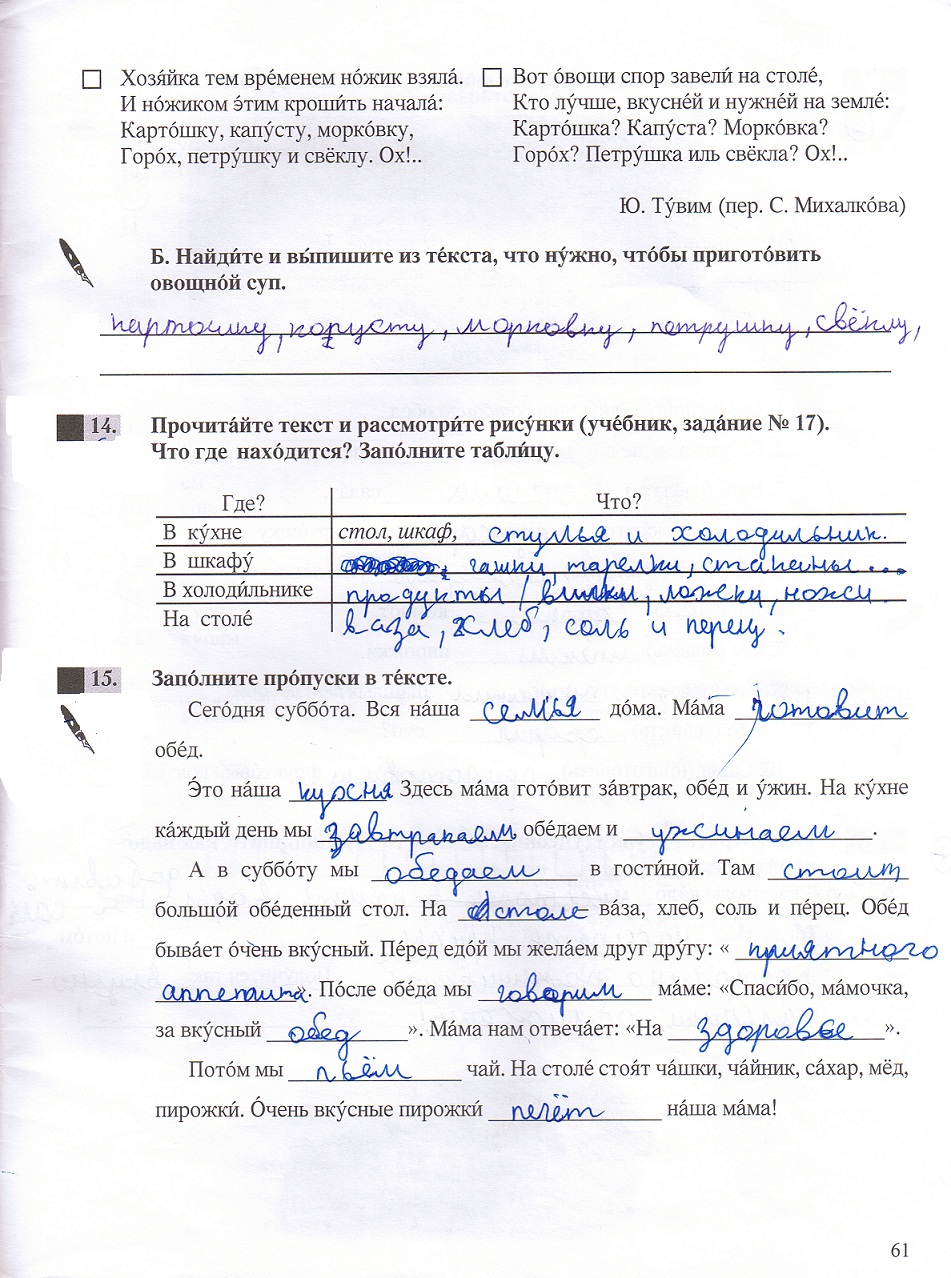 Хозя́йка тем вре́менем но́жик взяла́.
И но́жиком э́тим кроши́ть начала́:
Карто́шку, капу́сту, морко́вку,
Горо́х, петру́шку и свёклу. Ох!..
Вот о́вощи спор завели́ на столе́,
Кто лу́чше, вкусне́й и нужне́й на земле́:
Карто́шка? Капу́ста? Морко́вка?
Горо́х? Петру́шка иль свёкла? Ох!..
Ю. Ту́вим (пер. С. Михалко́ва)
Б. Найди́те и вы́пишите из те́кста, что ну́жно, что́бы пригото́вить
овощно́й суп.
картошку, корусту, морковку, петрушку, свёклу,
14. Прочита́йте текст и рассмотри́те рису́нки (уче́бник, зада́ние № 17).
Что где нахо́дится? Запо́лните табли́цу.
Где? Что?
В ку́хне стол, шкаф, стулья и холодильник.
В шкафу́ чашки, тарелки, стаканы ...
В холоди́льнике продукты / вилки, ложки, ножи.
На столе́ ваза, хлеб, соль и перец.
15. Запо́лните про́пуски в те́ксте.
Сего́дня суббо́та. Вся на́ша семья до́ма. Ма́ма готовит
обе́д.
Э́то на́ша кухня Здесь ма́ма гото́вит за́втрак, обе́д и у́жин. На ку́хне
ка́ждый день мы завтракаем, обе́даем и ужинаем.
А в суббо́ту мы обедаем в гости́ной. Там стоит
большо́й обе́денный стол. На столе ва́за, хлеб, соль и пе́рец. Обе́д
быва́ет о́чень вку́сный. Пе́ред едо́й мы жела́ем друг дру́гу: « приятного
аппетита». По́сле обе́да мы говорим ма́ме: «Спаси́бо, ма́мочка,
за вку́сный обед ». Ма́ма нам отвеча́ет: «На здоровье ».
Пото́м мы пьём чай. На столе́ стоя́т ча́шки, ча́йник, са́хар, мёд,
пирожки́. О́чень вку́сные пирожки́ печёт на́ша ма́ма!
61